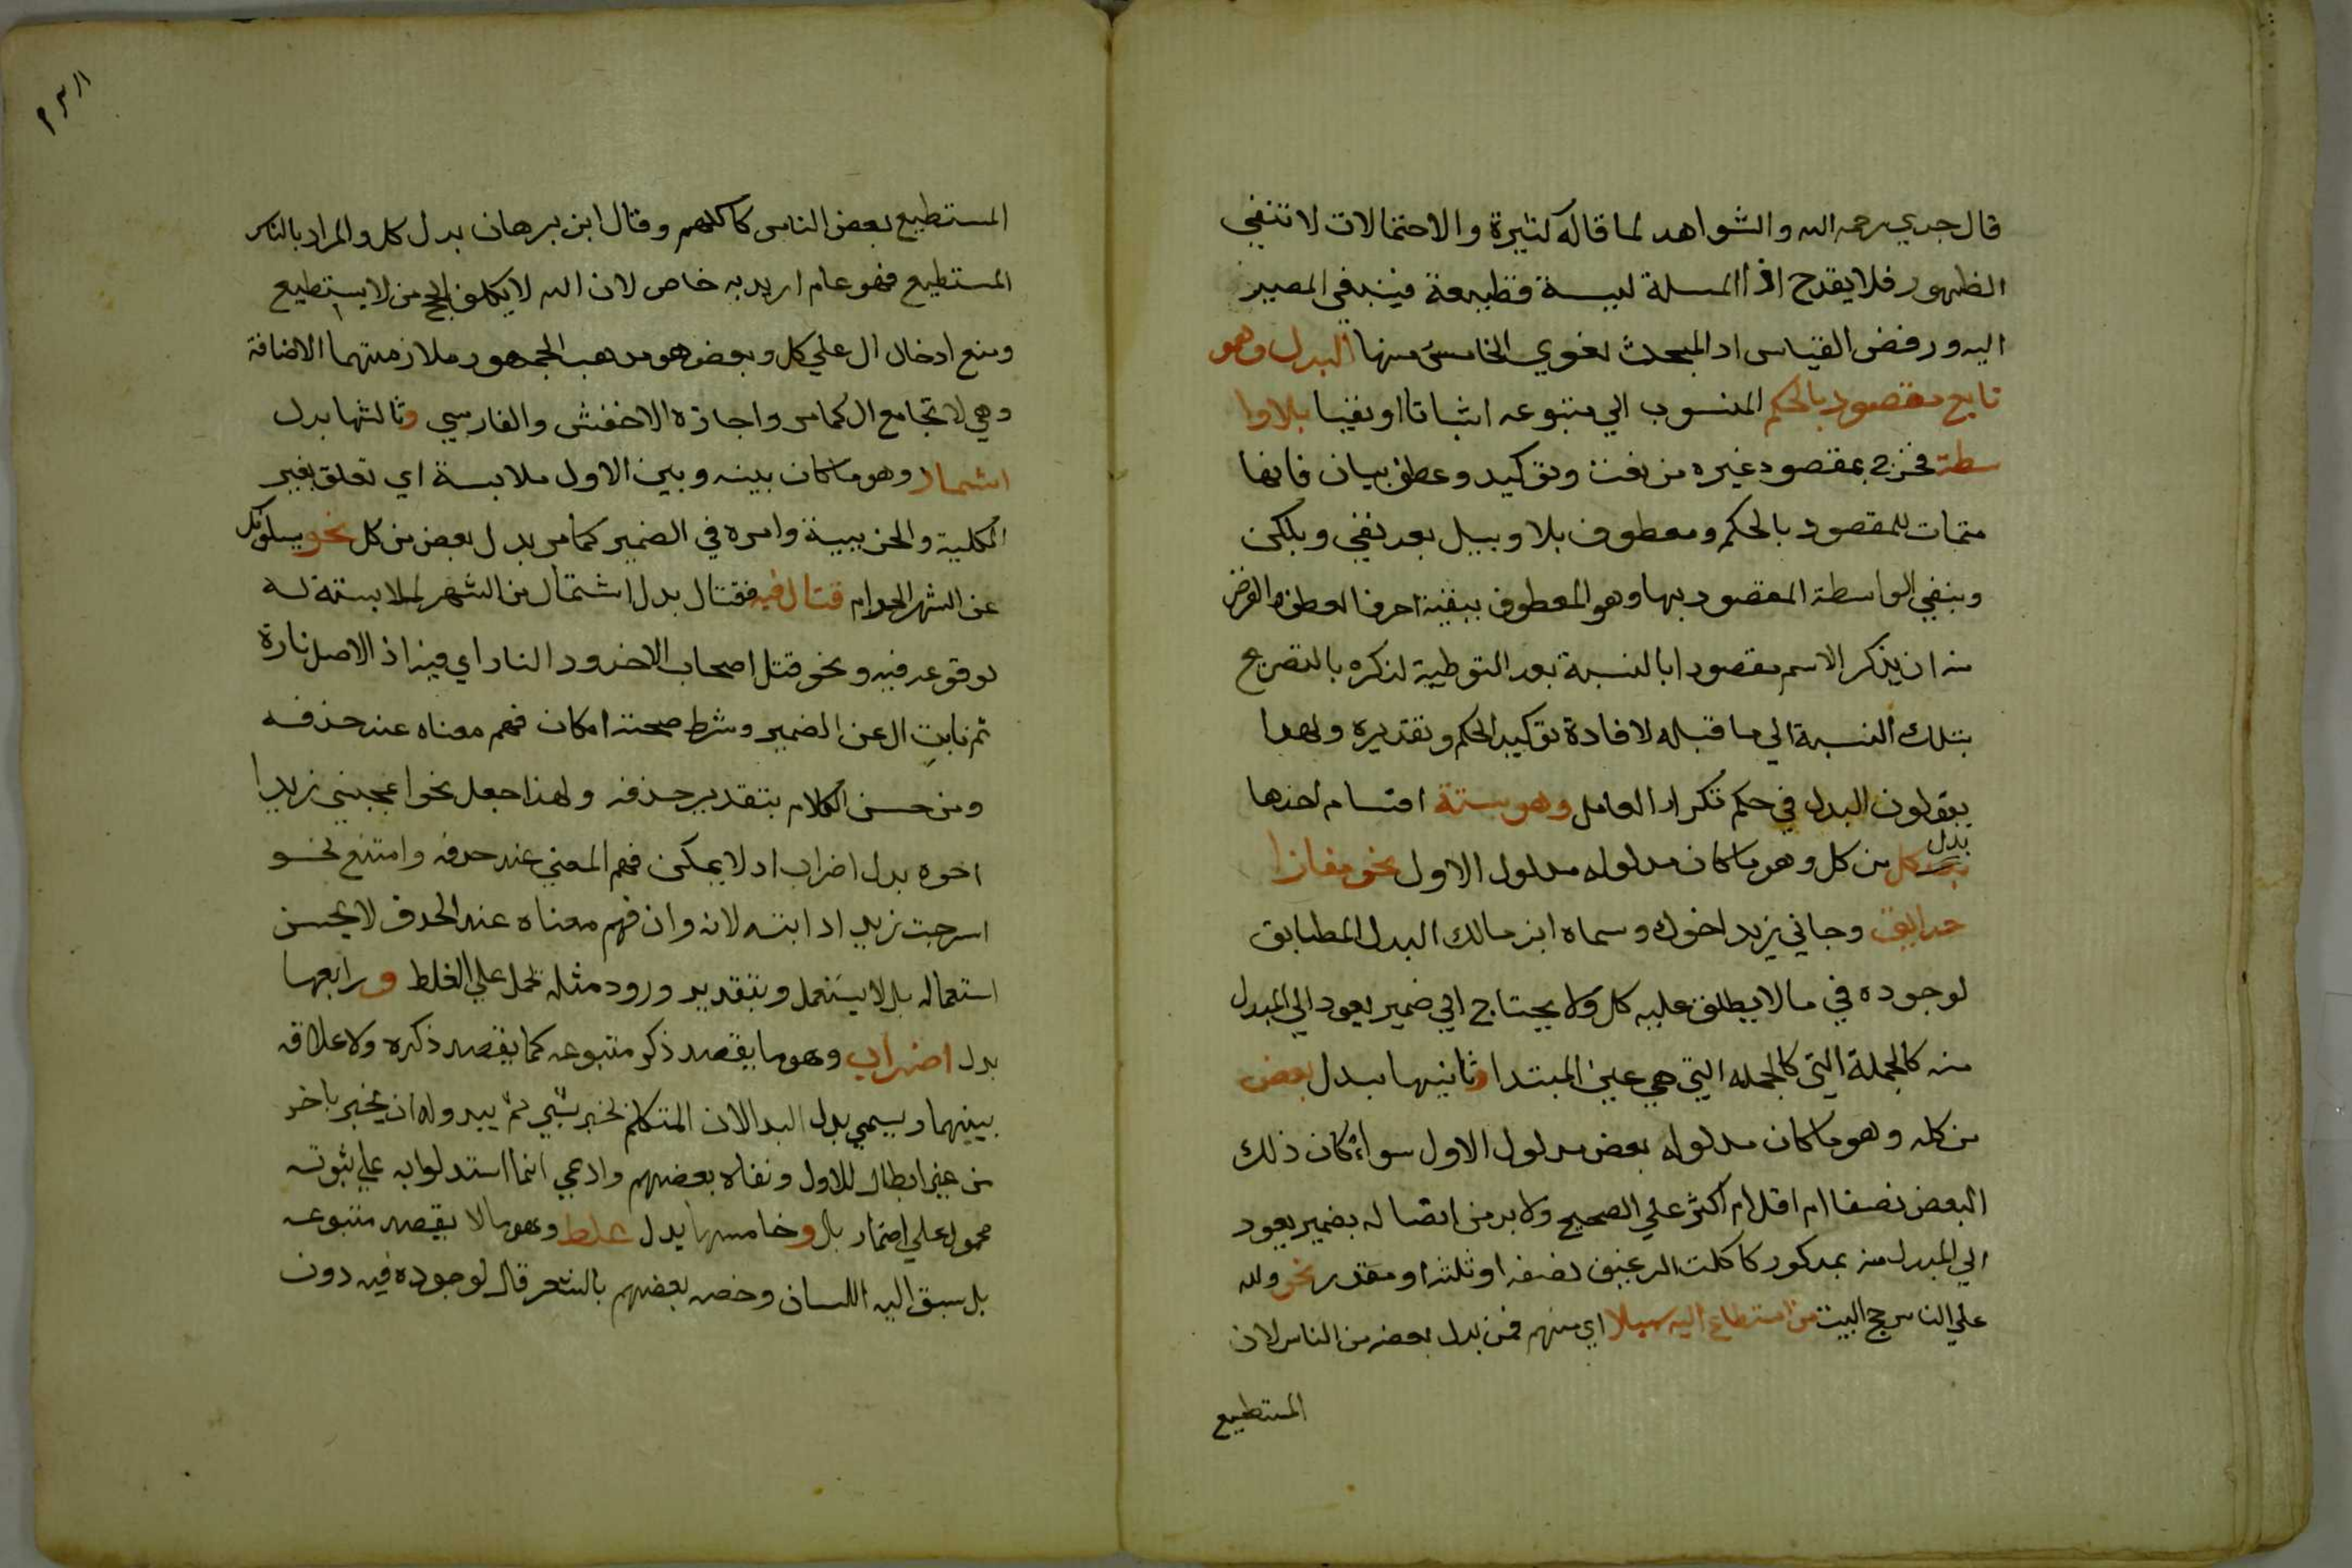 قال جدي رحمه الله والشواهد لما قاله كثيرة والاحتمالات لا تنفي
الظهور فلا يقدح اذ المسلة ليسة قطيعة فينبغي المصير
اليه ورفض القياس اد المبحث لغوي الخامس منها البدل وهو
تابع مقصود بالحكم المنسوب الي متبوعه اثباتا او نفيا بلا وا
سطة فخرج بمقصود غيره من نعت وتوكيد وعطف بيان فانها
متمات للمقصود بالحكم ومعطوف بلا وببل بعد نفي وبلكن
وبنفي الواسطة المقصود بها وهو المعطوف ببقية احرف العطف والغرض
منه ان يذكر الاسم مقصودا بالنسبة بعد التوطية لذكره بالتصريح
بتلك النسبة الي ما قبله لافادة توكيد الحكم وتقديره ولهدا
يقولون البدل في حكم تكرار العامل وهو ستة اقسام احدها
بدل كل من كل وهو ما كان مدلوله مدلول الاول نحو مفازا
حدايق وجاني زيد اخوك وسماه ابن مالك البدل المطابق
لوجوده في ما لا يطلق عليه كل ولا يحتاج الي ضمير يعود الي المبدل
منه كالجملة التي كالجمله التي هي عين المبتدا وثانيها بدل بعض
من كله وهو ما كان مدلوله بعض مدلول الاول سواء كان ذلك
البعض نصفا ام اقل ام اكثر علي الصحيح ولا بد من اتصاله بضمير يعود
الي المبدل منه بمدكور كاكلت الرغيف نصفه او ثلثه او مقدر نحو ولله
علي الناس حج البيت من استطاع اليه سبيلا اي منهم فمن بدل بعض من الناس لان
المستطيع
المستطيع بعض الناس لا كلهم وقال ابن برهان بدل كل والمراد بالناس
المستطيع فهو عام اريد به خاص لان الله لا يكلف الحج من لا يستطيع
ومنع ادخال ال علي كل وبعض هو مدهب الجمهور ملازمتهما الاضافة
وهي لا تجامع ال كما مر واجازه الاخفش والفارسي وثالثها بدل
اشتمال وهو ما كان بينه وبين الاول ملابسة اي تعلق بغير
الكلية والجزيية وامره في الضمير كما مر بدل بعض من كل نحو يسلونك
عن الشهر الحرام قتال فيه فقتال بدل اشتمال من الشهر لملابسته له
لوقوعه فيه ونحو قتل اصحاب الاخدود النار اي فيه اذ الاصل ناره
ثم نابت ال عن الضمير وشرط صحته امكان فهم معناه عند حذفه
ومن حسن الكلام بتقدير حذفه ولهذا جعل نحو اعجبني زيدا
اخوه بدل اضراب اد لا يمكن فهم المعني عند حدفه وامتنع نحو
اسرجت زيدا دابته لانه وان فهم معناه عند الحدف لا يحسن
استعماله بل لا يستعمل وبتقدير ورود مثله يحمل علي الغلط ورابعها
بدل اضراب وهو ما يقصد ذكر متبوعه كما يقصد ذكره ولا علاقه
بينهما ويسمي بدل البدا لان المتكلم يخبر بشي ثم يبدو له ان يخبر باخر
من غير ابطال للاول ونفاه بعضهم وادعي انما استدلوا به علي ثبوته
محمول علي اضمار بل وخامسها بدل غلط وهو ما لا يقصد متبوعه
بل سبق اليه اللسان وخصه بعضهم بالشعر قال لوجوده فيه دون